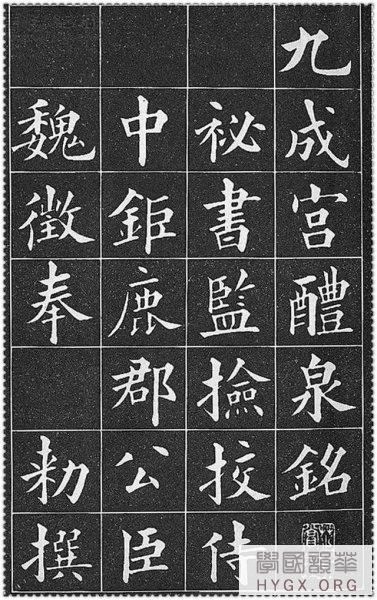 九成宮醴泉銘
祕書監撿挍侍
中鉅鹿郡公臣
魏徵奉勑撰
學國韻華
HYGX.ORG